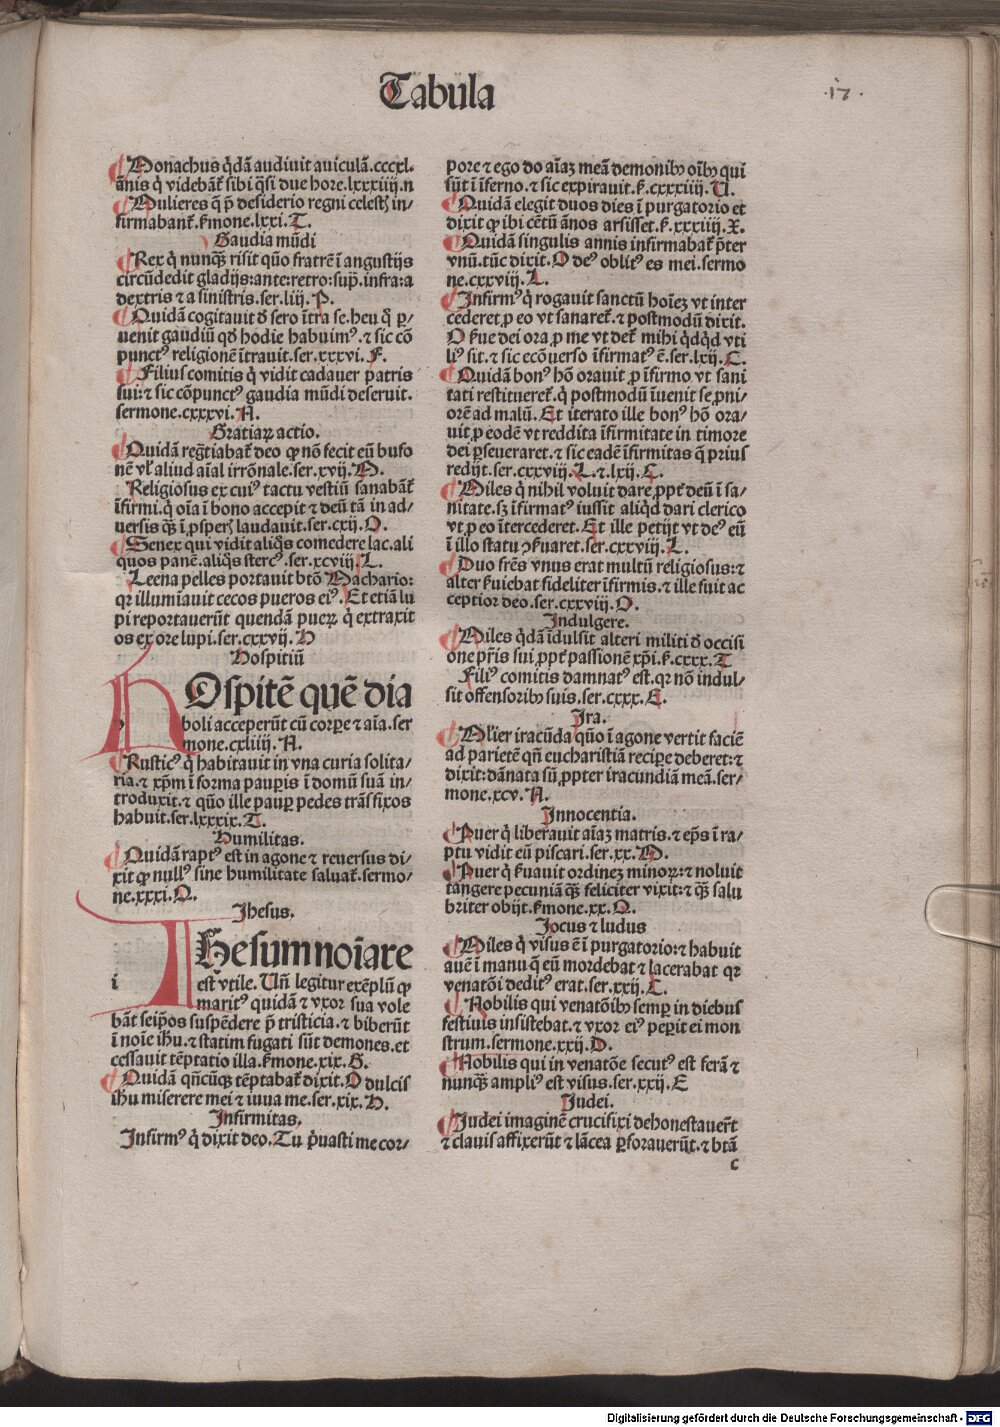 Tabula
.17.
Monachus q̇dā audiuit auiculā.cccxl.
ānis q̇ videbāt᷑ sibi q̄si due hore.lxxxiiij.n
Mulieres q̄ p̄ desiderio regni celestꝭ in⸗
firmabant᷑.ẜmone.lxxi.T.
Gaudia mūdi
Rex q̇ nunqꝫ risit quō fratrē ī angustijs
circūdedit gladijs:ante:retro:sup̄.infra:a
dextris ⁊ a sinistris.ser.liij.P.
Quidā cogitauit ꝺ̄ sero ītra se.heu q̇ ꝑ⸗
uenit gaudiū qd̄ hodie habuimꝰ.⁊ sic cō
punctꝰ religionē ītrauit.ser.xxxvi.F.
Filius comitis q̇ vidit cadauer patris
sui:⁊ sic cōpunctꝰ gaudia mūdi deseruit.
sermone.cxxxvi.A.
Gratiaꝝ actio.
Quidā regr̄tiabat᷑ deo ꝙ nō fecit eū bufo
nē vl̓ aliud aīal irrōnale.ser.xvij.M.
Religiosus ex cuiꝰ tactu vestiū sanabāt᷑
īfirmi.q̇ oīa ī bono accepit ⁊ deū tā in ad⸗
uersis qꝫ̄ ī ꝓsperꝭ laudauit.ser.cxij.O.
Senex qui vidit aliq̄s comedere lac.ali
quos panē.aliq̄s stercꝰ.ser.xcviij.L.
Leena pelles portauit btō Machario:
qꝛ illumīauit cecos pueros eiꝰ.Et etiā lu
pi reportauerūt quendā pueꝝ q̇ extraxit
os ex ore lupi.ser.cxxvij.H
Hospitiū
h
Ospitē quē dia
boli acceperūt cū corpꝑe ⁊ aīa.ser
mone.cxliiij.A.
Rusticꝰ q̇ habitauit in vna curia solita⸗
ria.⁊ xp̄m ī forma pauꝑis ī domū suā in⸗
troduxit.⁊ quō ille pauꝑ pedes trāsfixos
habuit.ser.lxxxix.T.
Humilitas.
Quidā raptꝰ est in agone ⁊ reuersus di⸗
xit ꝙ nullꝰ sine humilitate saluat᷑.sermo⸗
ne.xxxi.Q.
Jhesus.
i
Hesum noīare
est vtile. Un̄ legitur exēplū ꝙ
maritꝰ quidā ⁊ vxor sua vole
bāt seip̄os suspēdere p̄ tristicia.⁊ biberūt
ī noīe ih̄u.⁊ statim fugati sūt demones.et
cessauit tēptatio illa.ẜmone.xix.G.
Quidā qn̄cūqꝫ tēptabat᷑ dixit.O dulcis
ih̄u miserere mei ⁊ iuua me.ser.xix.H.
Infirmitas.
Infirmꝰ q̇ dixit deo.Tu p̄uasti me cor⸗
pore ⁊ ego do aīaꝫ meā demonibꝰ oībꝰ qui
sūt ī īferno.⁊ sic expirauit.ẜ.cxxxiiij.U.
Quidā elegit duos dies ī purgatorio et
dixit ꝙ ibi cētū ānos arsisset.ẜ.xxxiiij.X.
Quidā singulis annis infirmabat᷑ p̄ter
vnū.tūc dixit.O deꝰ oblitꝰ es mei.sermo
ne.cxxviij.L.
Infirmꝰ q̇ rogauit sanctū hoīeꝫ vt inter
cederet ꝓ eo vt sanaret᷑.⁊ postmodū dixit.
O ẜue dei ora ꝓ me vt det᷑ mihi q̇dq̇d vti
liꝰ sit.⁊ sic ecōuerso īfirmatꝰ ē.ser.lxij.C.
Quidā bonꝰ hō orauit ꝓ īfirmo vt sani
tati restitueret᷑.q̇ postmodū īuenit se ꝓni⸗
orē ad malū.Et iterato ille bonꝰ hō ora⸗
uit ꝓ eodē vt reddita īfirmitate in timore
dei ꝑseueraret.⁊ sic eadē īfirmitas q̄ prius
redijt.ser.cxxviij.L.⁊.lxij.C.
Miles q̇ nihil voluit dare ꝓpt̓ deū ī sa⸗
nitate.sꝫ īfirmatꝰ iussit aliq̇d dari clerico
vt ꝓ eo ītercederet.Et ille petijt vt deꝰ eū
ī illo statu ꝯẜuaret.ser.cxxviij.L.
Duo frēs vnus erat multū religiosus:⁊
alter ẜuiebat fideliter īfirmis.⁊ ille fuit ac
ceptior deo.ser.cxxviij.O.
Indulgere.
Miles q̇dā īdulsit alteri militi ꝺ̄ occisi
one pr̄is sui ꝓpt̓ passionē xp̄i.ẜ.cxxx.T
Filiꝰ comitis damnatꝰ est.qꝛ nō indul⸗
sit offensoribꝰ suis.ser.cxxx.E.
Ira.
Mlier iracūda quō ī agone vertit faciē
ad parietē qn̄ eucharistiā reciꝑe deberet:⁊
dixit:dānata sū ꝓpter iracundiā meā.ser⸗
mone.xcv.A.
Innocentia.
Puer q̇ liberauit aīaꝫ matris.⁊ ep̄s ī ra⸗
ptu vidit eū piscari.ser.xx.M.
Puer q̇ ẜuauit ordineꝫ minoꝝ:⁊ noluit
tangere pecuniā qꝫ̄ feliciter vixit:⁊ qꝫ̄ salu
briter obijt.ẜmone.xx.Q.
Jocus ⁊ ludus
Miles q̇ visus ē ī purgatorio:⁊ habuit
auē ī manu q̄ eū mordebat ⁊ lacerabat qꝛ
venatōi deditꝰ erat.ser.xxij.C.
Nobilis qui venatōibꝰ semꝑ in diebus
festiuis insistebat.⁊ vxor eiꝰ peꝑit ei mon
strum.sermone.xxij.D.
Nobilis qui in venatōe secutꝰ est ferā ⁊
nunqꝫ̄ ampliꝰ est visus.ser.xxij.E
Judei.
Judei imaginē crucifixi dehonestauer̄t
⁊ clauis affixerūt ⁊ lācea ꝑforauerūt.⁊ btā
c
Digitalisierung gefördert durch die Deutsche Forschungsgemeinschaft - DFG